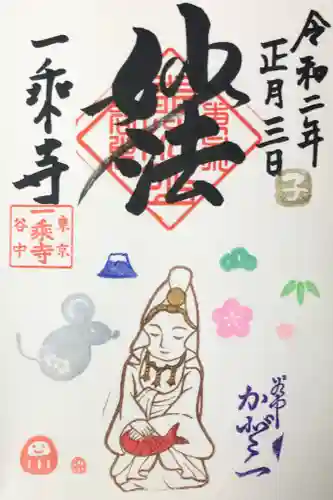 令和二年
正月三日
子
妙法
一乘寺
東京
一乘寺
谷中